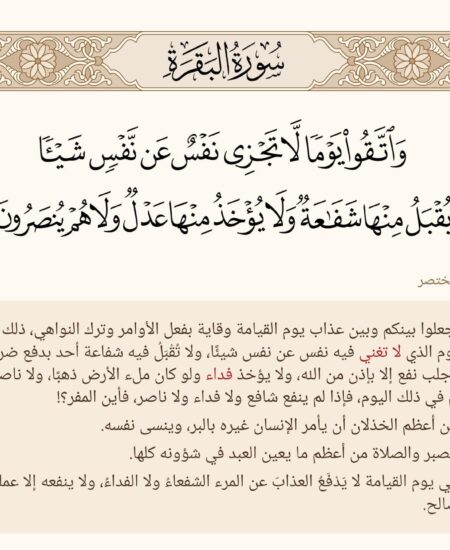 سُورَةُ البَقَرَةِ
وَٱتَّقُوا۟ يَوْمًا لَّا تَجْزِى نَفْسٌ عَن نَّفْسٍ شَيْـًٔا
يُقْبَلُ مِنْهَا شَفَـٰعَةٌ وَلَا يُؤْخَذُ مِنْهَا عَدْلٌ وَلَا هُمْ يُنصَرُونَ
ختصر
جعلوا بينكم وبين عذاب يوم القيامة وقاية بفعل الأوامر وترك النواهي، ذلك
وم الذي لا تغني فيه نفس عن نفس شيئًا، ولا تُقْبَلُ فيه شفاعة أحد بدفع ضر
جلب نفع إلا بإذن من الله، ولا يؤخذ فداء ولو كان ملء الأرض ذهبًا، ولا ناص
في ذلك اليوم، فإذا لم ينفع شافع ولا فداء ولا ناصر، فأين المفر؟!
ن أعظم الخذلان أن يأمر الإنسان غيره بالبر، وينسى نفسه.
صبر والصلاة من أعظم ما يعين العبد في شؤونه كلها.
ي يوم القيامة لا يَدْفَعُ العذابَ عن المرء الشفعاءُ ولا الفداءُ، ولا ينفعه إلا عمل
صالح.